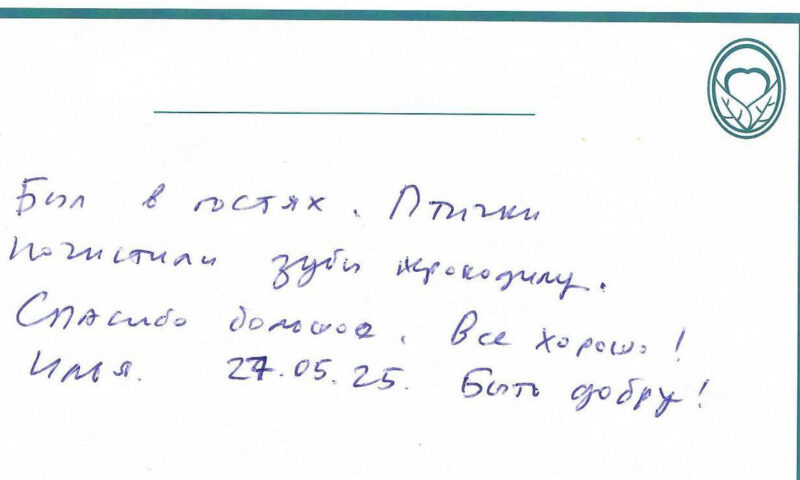 Был в гостях. Птички
почистили зубы крокодилу.
Спасибо большое. Все хорошо!
Илья. 27.05.25. Быть добру!